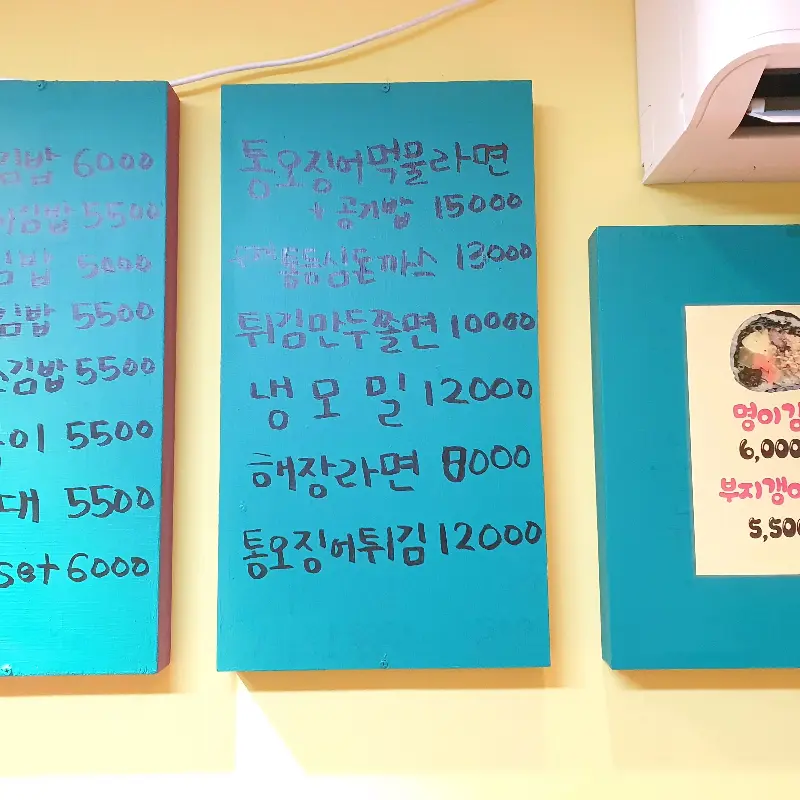 김밥 6000
김밥 5500
김밥 5000
김밥 5500
김밥 5500
이 5500
대 5500
set 6000
통오징어먹물라면
+ 공기밥 15000
수제통등심돈까스 13000
튀김만두쫄면 10000
냉모밀 12000
해장라면 8000
통오징어튀김 12000
명이김
6,000
부지갱이
5,500